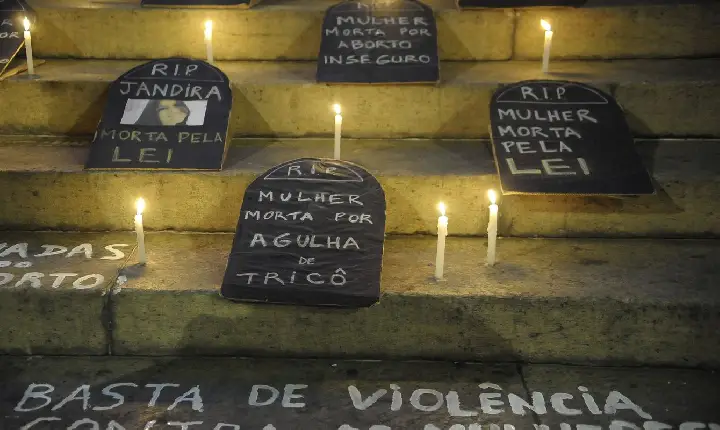 MULHER
MORTA POR
ABORTO
INSEGURO
RIP
JANDIRA
MORTA PELA
LEI
RIP
MULHER
MORTA
PELA
LEI
RIP
MULHER
MORTA POR
AGULHA
DE
TRICÔ
BASTA DE VIOLÊNCIA
CONTRA AS MULHERES